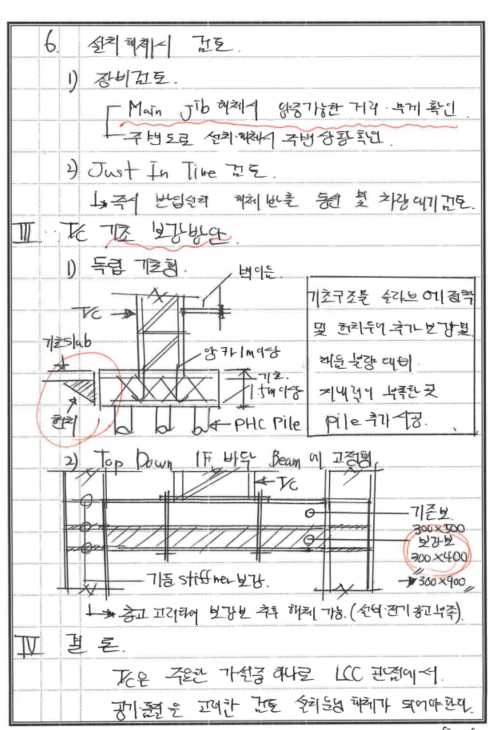 6. 설치 해체시 검토.
1) 장비검토.
Main Jib 해체시 양중가능한 거리·무게 확인
주변도로 설치·해체시 주변상황 확인.
2) Just In Time 검토.
↳ 즉시 반입설치 해체 반출 동선 및 차량대기검토.
III. T/C 기초 보강방안.
1) 독립 기초형.
벽이음.
T/C
기초구조물 슬라브에 접착
및 헌치두어 추가보강 및
기초slab
앙카 1m이상
기초
1.5m이상
지내력이 부족한 곳
헌치
PHC Pile
pile 추가시공.
2) Top Down 1F 바닥 Beam에 고정형
T/C
기존보
300×500
보강보
300×400
기둥 stiffner 보강.
300×900
↳ 층고 고려하여 보강보 추후 해체 가능.
IV 결론.
T/C은 주요한 가설중 하나로 LCC 관점에서.
공기·품질을 고려한 검토 설치운영 해체가 되어야한다.